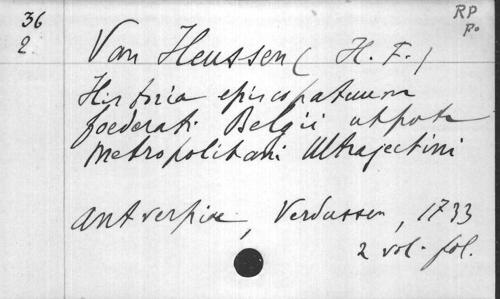 36
2.
RP
Po
Van Heussen (H. F.)
Historia episcopatuum
foederati Belgii utpote
Metropolitani Ultrajectini
Antverpiae, Verdussen, 1733
2 vol. fol.